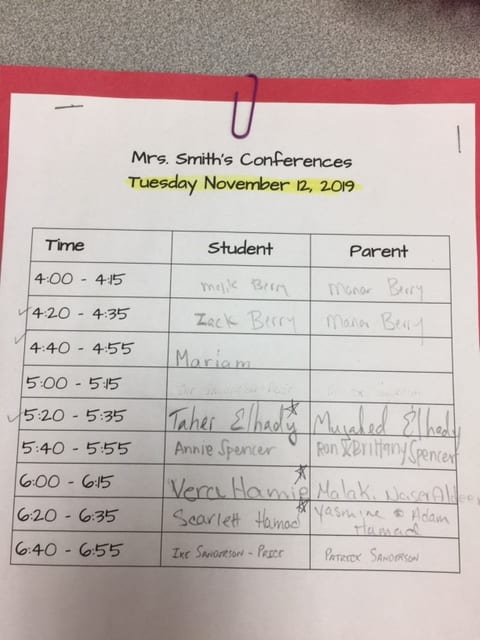 Mrs. Smith's Conferences
Tuesday November 12, 2019
Time Student Parent
4:00 - 4:15 Malik Berry Manar Berry
4:20 - 4:35 Zack Berry Manar Berry
4:40 - 4:55 Mariam
5:00 - 5:15
5:20 - 5:35 Taher Elhady Mujahed Elhady
5:40 - 5:55 Annie Spencer Ron & Brittany Spencer
6:00 - 6:15 Vera Hamie Malak
6:20 - 6:35 Scarlett Hamad Yasmine & Adam
Hamad
6:40 - 6:55 Ike Sanderson - Price Patrick Sanderson